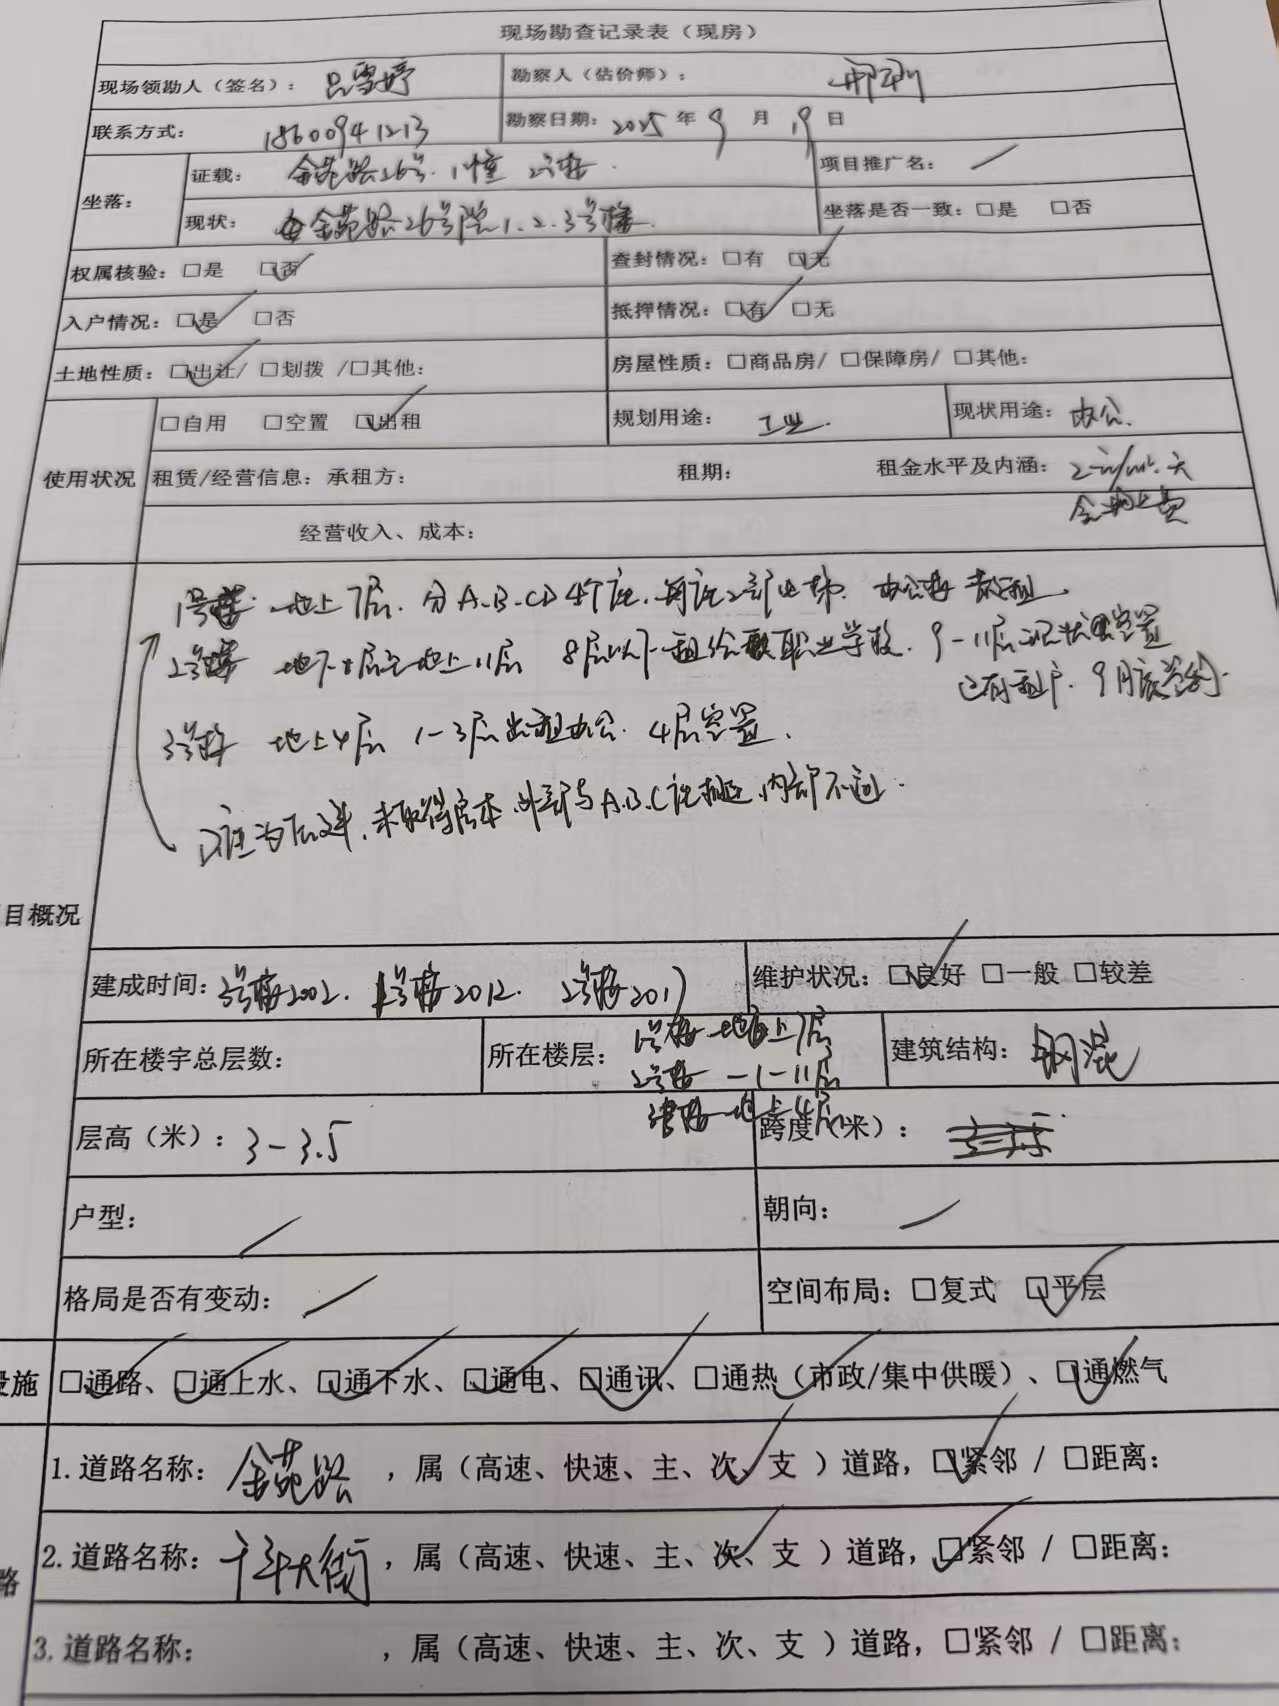 现场勘查记录表（现房）
现场领勘人（签名）： 吕雪婷 勘察人（估价师）：
联系方式： 18600941213 勘察日期： 2025 年 9 月 19 日
坐落： 证载： 金苑路26号 1幢 2号楼 项目推广名： /
现状： 金苑路26号院1、2、3号楼 坐落是否一致：□是 □否
权属核验：□是 ☑否 查封情况：□有 ☑无
入户情况：☑是 □否 抵押情况：☑有 □无
土地性质：☑出让/ □划拨 /□其他： 房屋性质：□商品房/ □保障房/ □其他：
使用状况 □自用 □空置 ☑出租 规划用途： 工业 现状用途： 办公
租赁/经营信息：承租方： 租期： 租金水平及内涵： 2元/㎡·天
含物业费
经营收入、成本：
1号楼 地上7层，分A、B、C、D 4个座，每座2部电梯，办公楼
2号楼 地下1层至地上11层 8层以下租给 职业学校，9-11层现状空置
已有租户，9月底签约
3号楼 地上4层 1-3层出租办公，4层空置
D座为后建，未取得房本，外部与A、B、C座 ，内部不通
目概况
建成时间： 3号楼2002. 1号楼2012. 2号楼2017 维护状况：☑良好 □一般 □较差
所在楼宇总层数： 所在楼层： 1号楼 地上7层 建筑结构： 钢混
2号楼 -1-11层
3号楼 地上4层
层高（米）： 3-3.5 跨度（米）：
户型： / 朝向： /
格局是否有变动： / 空间布局：□复式 ☑平层
设施 ☑通路、☑通上水、☑通下水、☑通电、☑通讯、☑通热（市政/集中供暖）、☑通燃气
1.道路名称： 金苑路 ，属（高速、快速、主、次、支 ）道路，☑紧邻 / □距离：
路 2.道路名称： 千斗大街 ，属（高速、快速、主、次、支 ）道路，☑紧邻 / □距离：
3.道路名称： ，属（高速、快速、主、次、支 ）道路，□紧邻 / □距离：